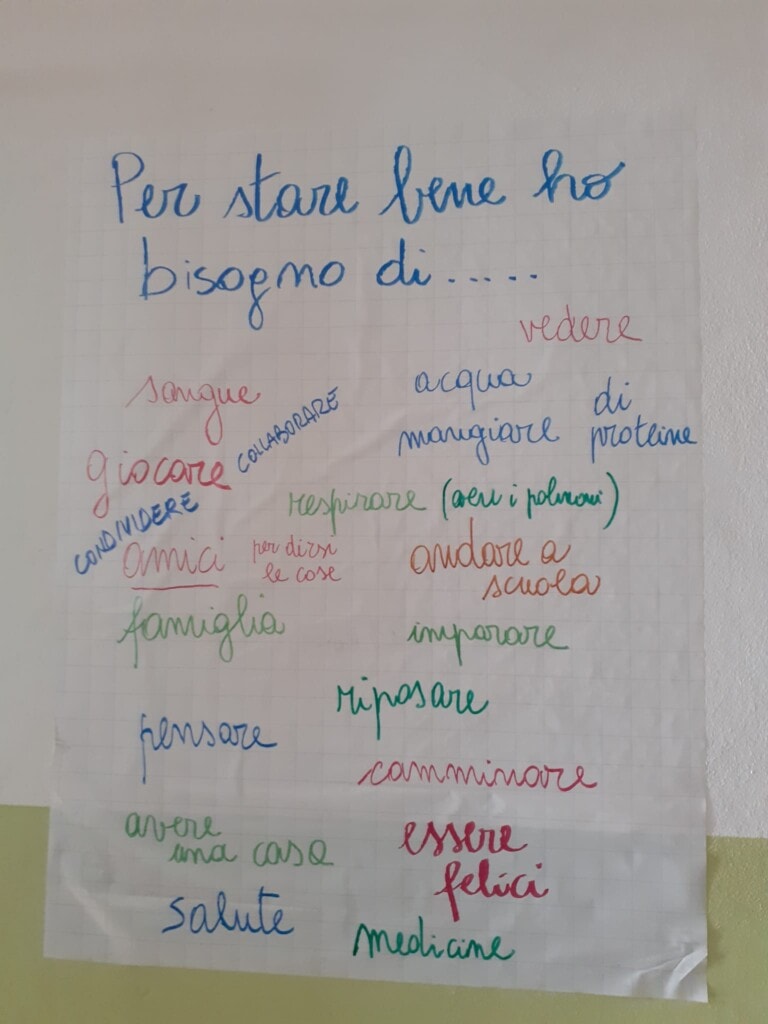 Per stare bene ho
bisogno di.....
vedere
sangue
acqua
di
COLLABORARE
mangiare
proteine
giocare
respirare (avere i polmoni)
CONDIVIDERE
amici
per dirsi
le cose
andare a
scuola
famiglia
imparare
riposare
pensare
camminare
avere
una casa
essere
felici
salute
medicine